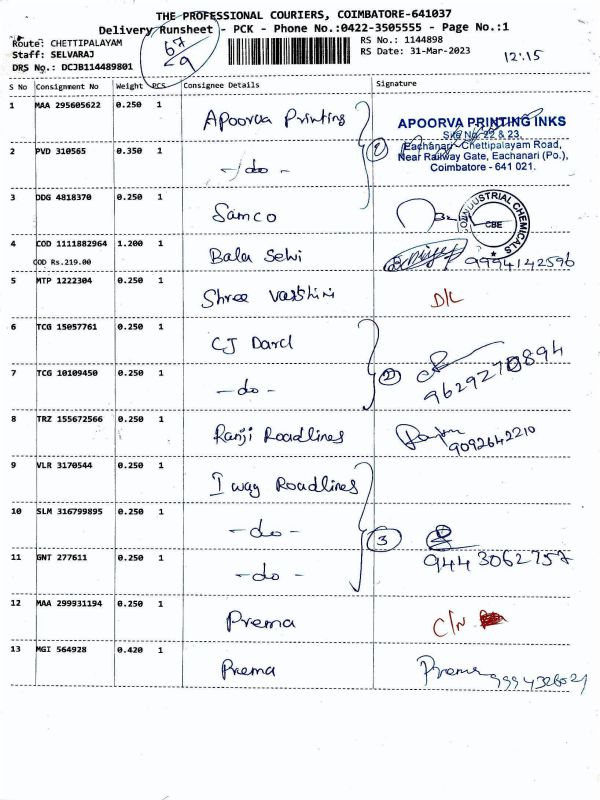 THE PROFESSIONAL COURIERS, COIMBATORE-641037
Delivery Runsheet - PCK - Phone No.:0422-3505555 - Page No.:1
Route: CHETTIPALAYAM RS No.: 1144898
Staff: SELVARAJ RS Date: 31-Mar-2023 12:15
DRS No.: DCJB114489801
67/9
S No Consignment No Weight PCS Consignee Details Signature
1 MAA 295605622 0.250 1 Apoorva Printing
APOORVA PRINTING INKS
Site No. 22 & 23,
2 PVD 310565 0.350 1 -do-
Eachanari - Chettipalayam Road,
Near Railway Gate, Eachanari (Po.),
Coimbatore - 641 021.
3 DDG 4818370 0.250 1 Samco
INDUSTRIAL CHEMICALS
CBE
4 COD 1111882964 1.200 1 Bala Selvi 9994142596
COD Rs.219.00
5 MTP 1222304 0.250 1 Shree Varshini D/L
6 TCG 15057761 0.250 1 CJ Darcl
7 TCG 10109450 0.250 1 -do- 2 9629270894
8 TRZ 155672566 0.250 1 Ranji Roadlines 9092642210
9 VLR 3170544 0.250 1 I way Roadlines
10 SLM 316799895 0.250 1 -do- 3
11 GNT 277611 0.250 1 -do- 9443062757
12 MAA 299931194 0.250 1 Prema C/N
13 MGI 564928 0.420 1 Prema Prema